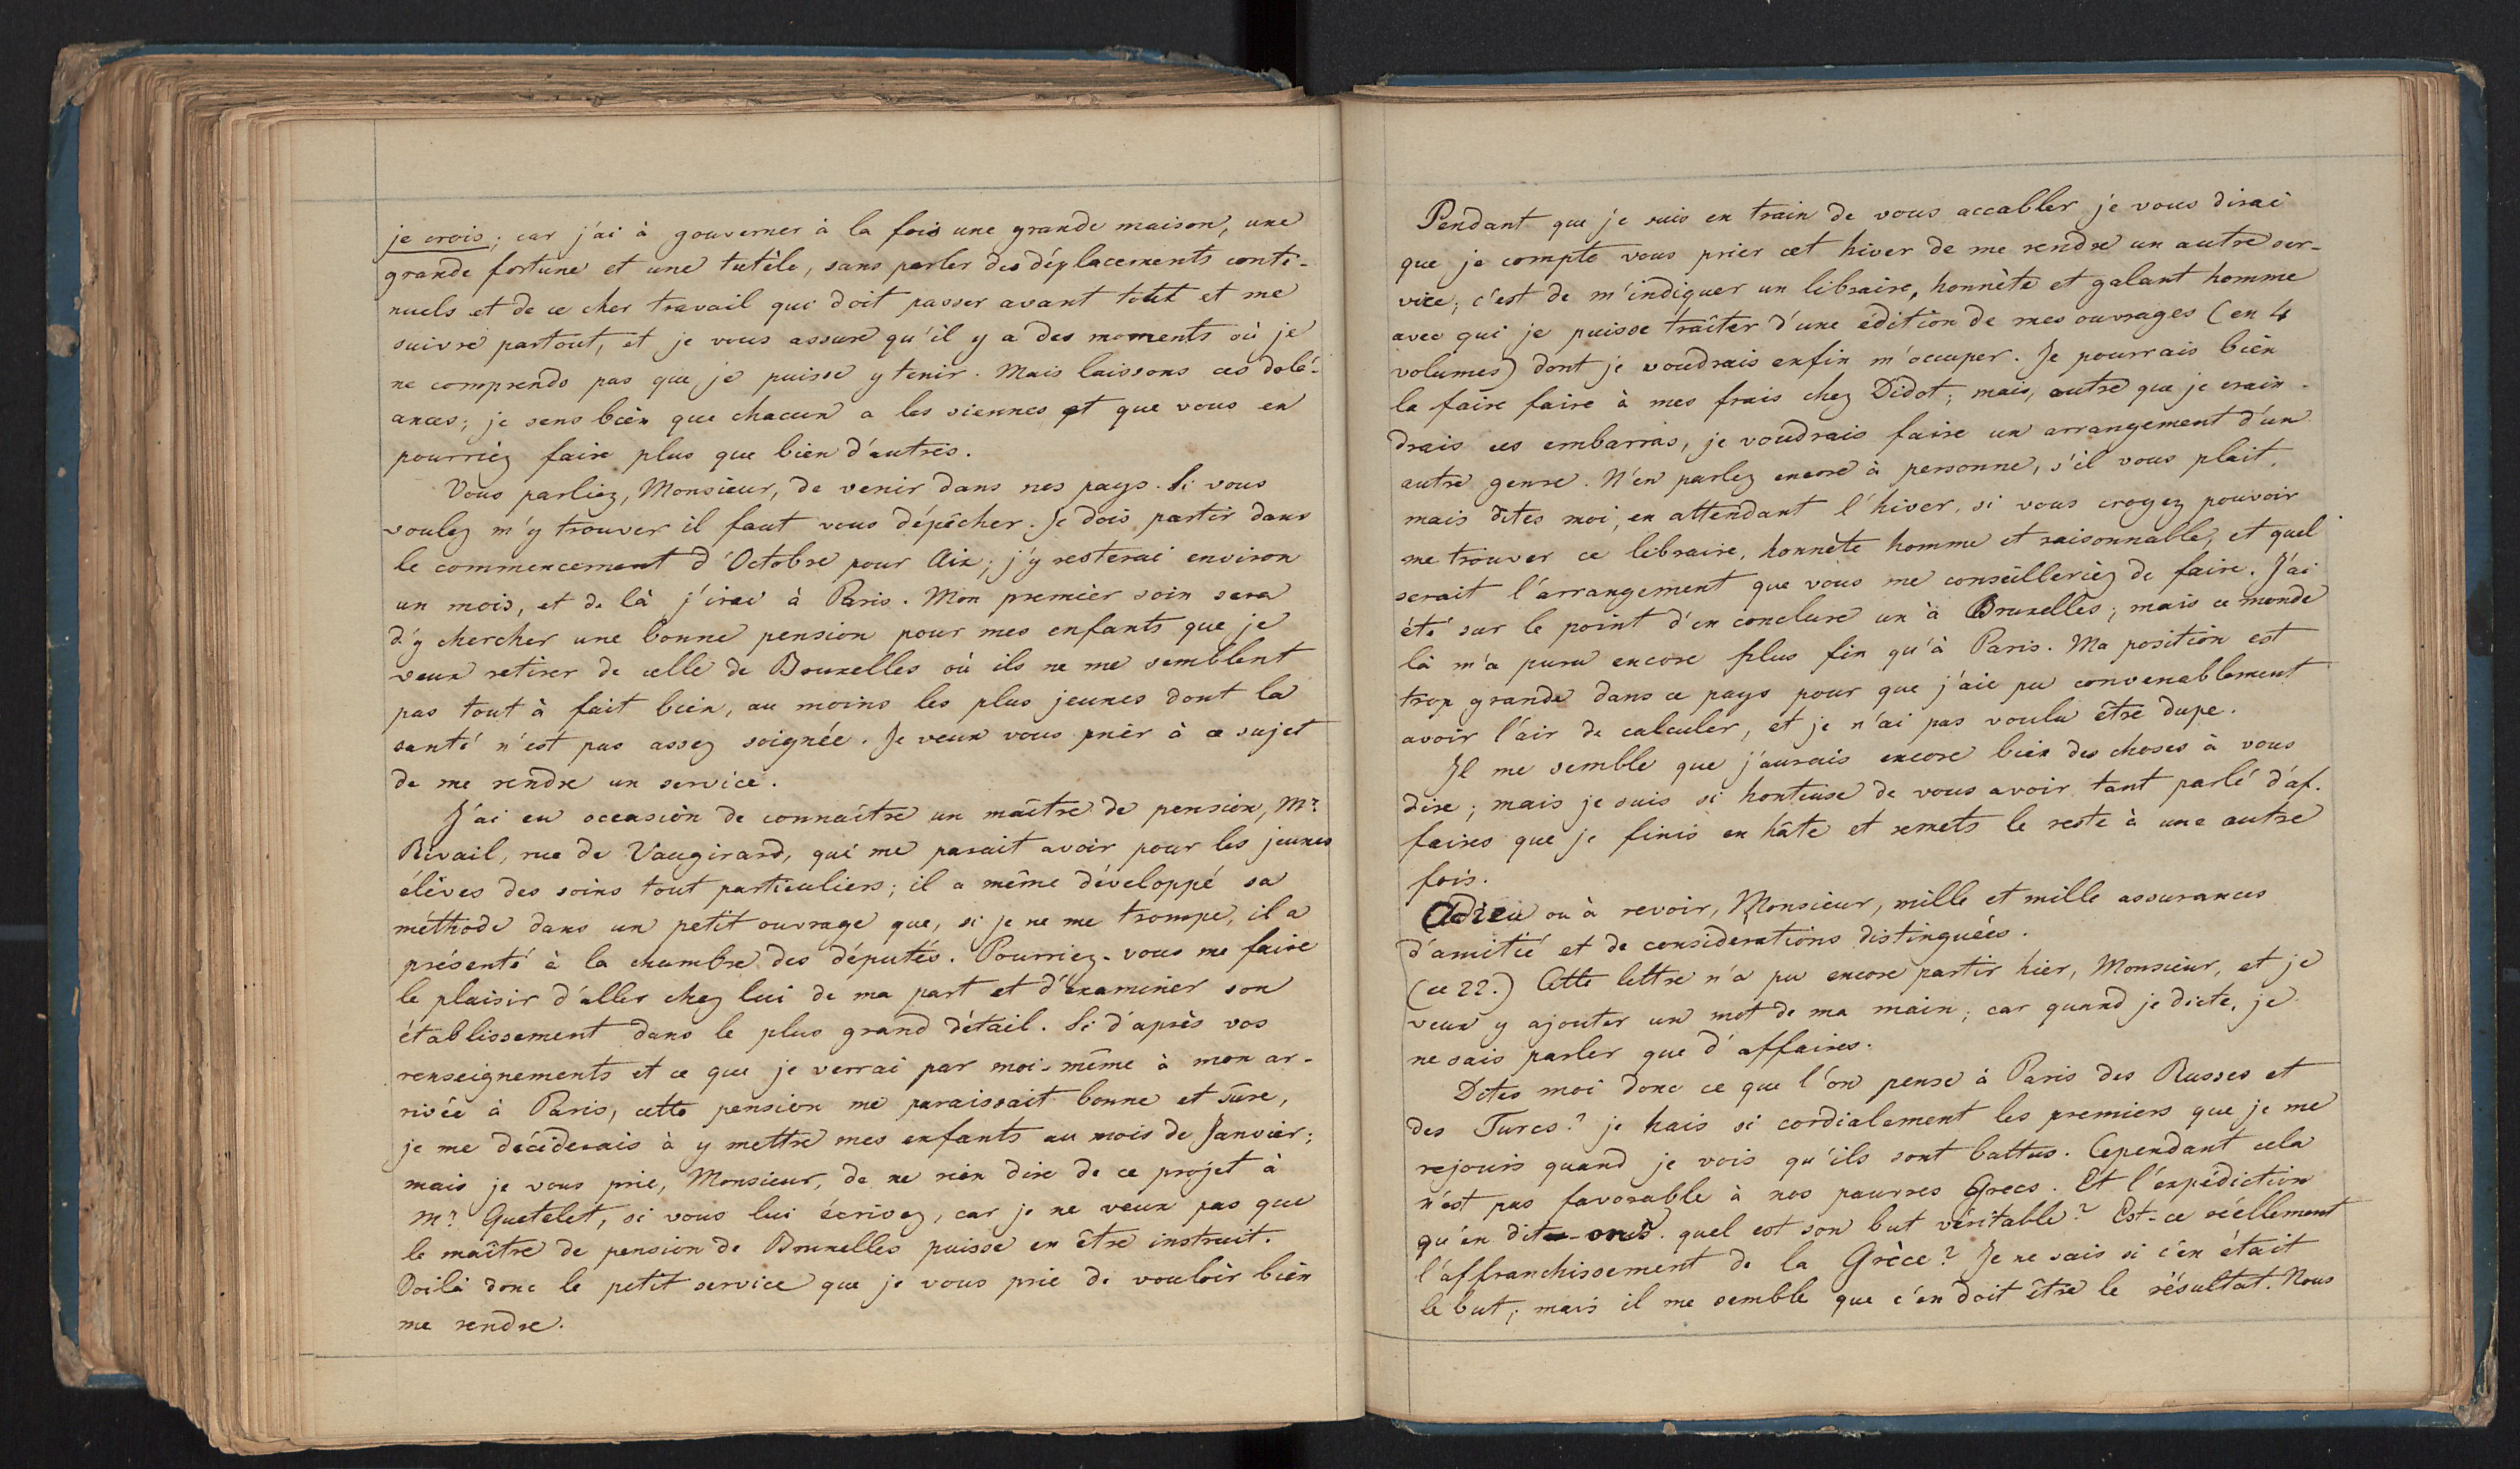 je crois; car j'ai à gouverner à la fois une grande maison, une
grande fortune et une tutèle, sans parler des déplacements conti-
nuels et de ce cher travail qui doit passer avant tout et me
suivre partout, et je vous assure qu'il y a des moments où je
ne comprends pas que je puisse y tenir. Mais laissons ces dolé-
ances; je sens bien que chacun a les siennes et que vous en
pourriez faire plus que bien d'autres.
Vous parliez, Monsieur, de venir dans nos pays. Si vous
voulez m'y trouver il faut vous dépêcher. Je dois partir dans
le commencement d'Octobre pour Aix; j'y resterai environ
un mois, et de là j'irai à Paris. Mon premier soin sera
d'y chercher une bonne pension pour mes enfants que je
veux retirer de celle de Bruxelles où ils ne me semblent
pas tout à fait bien, au moins les plus jeunes dont la
santé n'est pas assez soignée. Je veux vous prier à ce sujet
de me rendre un service.
J'ai eu occasion de connaître un maître de pension, Mr
Rivail, rue de Vaugirard, qui me parait avoir pour les jeunes
élèves des soins tout particuliers; il a même développé sa
méthode dans un petit ouvrage que, si je ne me trompe, il a
présenté à la chambre des députés. Pourriez-vous me faire
le plaisir d'aller chez lui de ma part et d'examiner son
établissement dans le plus grand détail. Si d'après vos
renseignements et ce que je verrai par moi-même à mon ar-
rivée à Paris, cette pension me paraissait bonne et sûre,
je me déciderais à y mettre mes enfants au mois de Janvier;
mais je vous prie, Monsieur, de ne rien dire de ce projet à
Mr Quetelet, si vous lui écrivez, car je ne veux pas que
le maître de pension de Bruxelles puisse en être instruit.
Voilà donc le petit service que je vous prie de vouloir bien
me rendre.
Pendant que je suis en train de vous accabler je vous dirai
que je compte vous prier cet hiver de me rendre un autre ser-
vice, c'est de m'indiquer un libraire, honnète et galant homme
avec qui je puisse traîter d'une édition de mes ouvrages (en 4
volumes) dont je voudrais enfin m'occuper. Je pourrais bien
la faire faire à mes frais chez Didot; mais, outre que je crain-
drais ces embarras, je voudrais faire un arrangement d'un
autre genre. N'en parlez encore à personne, s'il vous plait,
mais dites moi, en attendant l'hiver, si vous croyez pouvoir
me trouver ce libraire, honnète homme et raisonnable, et quel
serait l'arrangement que vous me conseilleriez de faire. J'ai
été sur le point d'en conclure un à Bruxelles; mais ce monde
là m'a paru encore plus fin qu'à Paris. Ma position est
trop grande dans ce pays pour que j'aie pu convenablement
avoir l'air de calculer, et je n'ai pas voulu être dupe.
Il me semble que j'aurais encore bien des choses à vous
dire; mais je suis si honteuse de vous avoir tant parlé d'af-
faires que je finis en hâte et remets le reste à une autre
fois.
Adieu ou à revoir, Monsieur, mille et mille assurances
d'amitié et de considérations distinguées.
(ce 22.) Cette lettre n'a pu encore partir hier, Monsieur, et je
veux y ajouter un mot de ma main; car quand je dicte, je
ne sais parler que d'affaires.
Dites moi donc ce que l'on pense à Paris des Russes et
des Turcs? je hais si cordialement les premiers que je me
rejouis quand je vois qu'ils sont battus. Cependant cela
n'est pas favorable à nos pauvres Grecs. Et l'expédiction
qu'en dit-on? quel est son but véritable? Est-ce réellement
l'affranchissement de la Grèce? Je ne sais si c'en était
le but; mais il me semble que c'en doit être le résultat. Nous